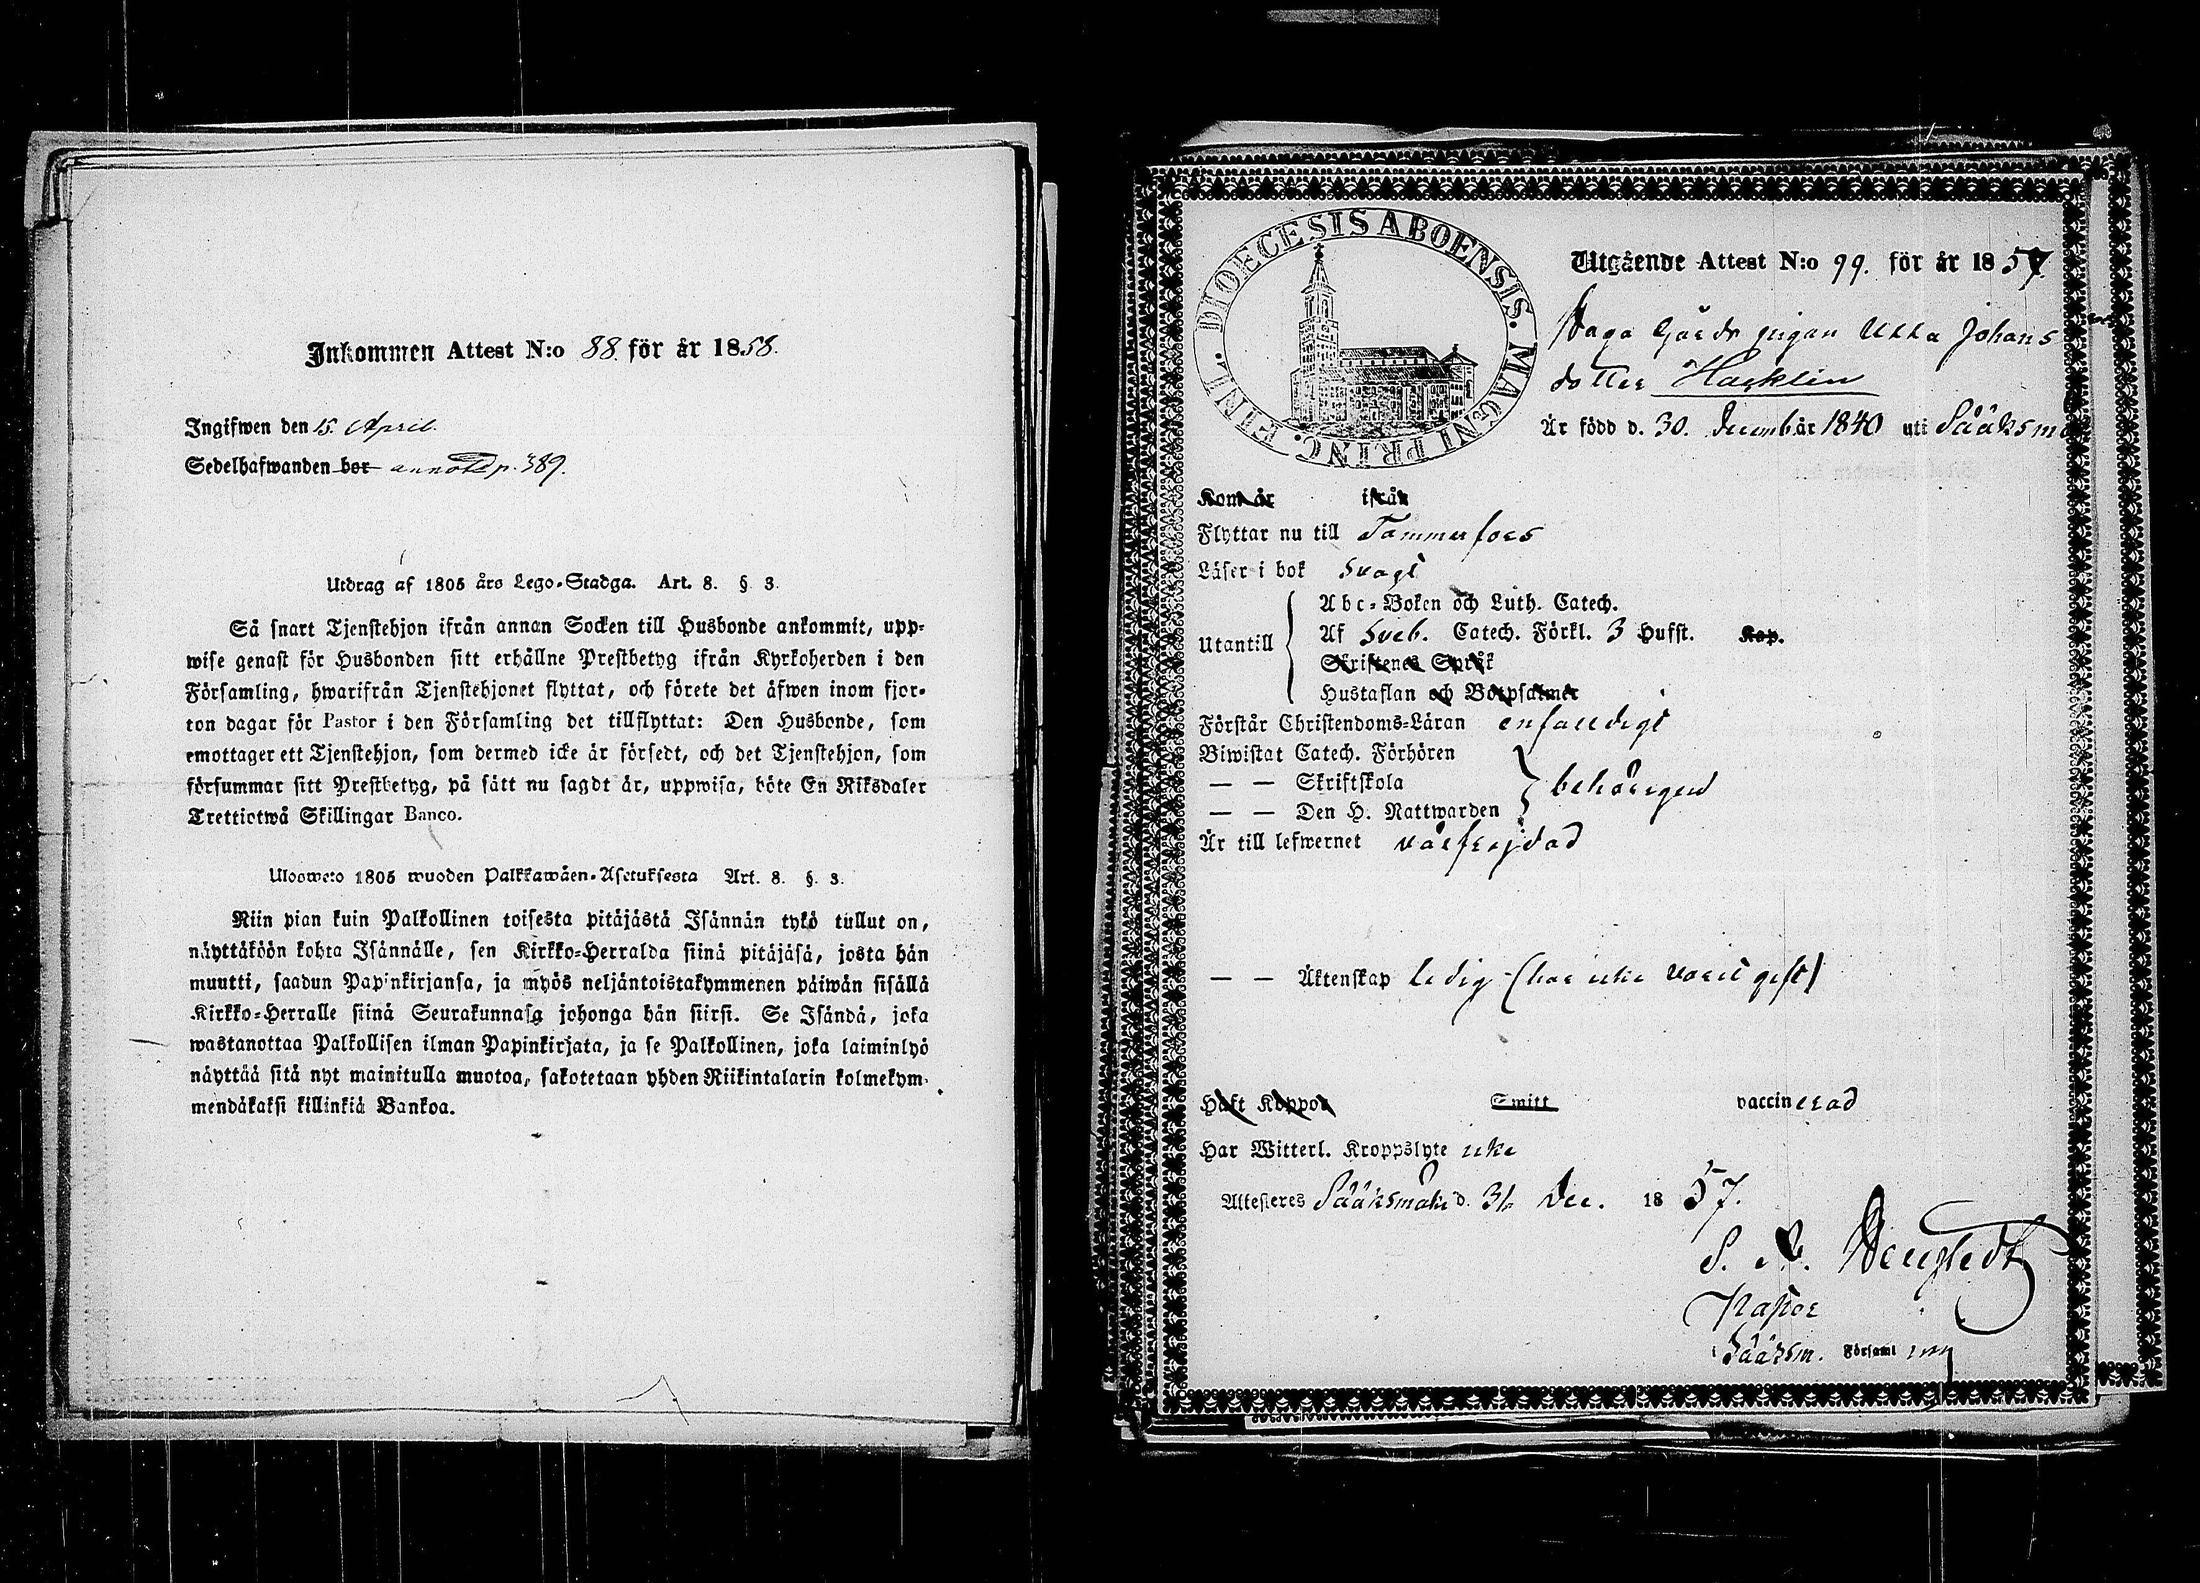 Inkommen Attest N:o 88. för år 1858.
Ingifwen den 15. April.
Sedelhafwanden bor annoterd p. 389.
Utdrag af 1805 års Lego-Stadga. Art. 8. § 3.
Så snart Tjenstehjon ifrån annan Socken till Husbonde ankommit, upp-
wise genast för Husbonden sitt erhållne Prestbetyg ifrån Kyrkoherden i den
Församling, hwarifrån Tjenstehjonet flyttat, och förete det äfwen inom fjor-
ton dagar för Pastor i den Församling det tillflyttat: Den Husbonde, som
emottager ett Tjenstehjon, som dermed icke är försedt, och det Tjenstehjon, som
försummar sitt Prestbetyg, på sätt nu sagdt är, uppwisa, böte En Riksdaler
Trettiotwå Skillingar Banco.
Ulosweto 1805 wuoden Palkkawäen-Asetuksesta Art. 8. §. 3.
Niin pian kuin Palkollinen toisesta pitäjästä Isännän tykö tullut on,
näyttäköön kohta Isännälle, sen Kirkko-Herralda siinä pitäjäsä, josta hän
muutti, saadun Papinkirjansa, ja myös neljäntoistakymmenen päiwän sisällä
Kirkko-Herralle siinä Seurakunnasa johonga hän siirsi. Se Isändä, joka
wastanottaa Palkollisen ilman Papinkirjata, ja se Palkollinen, joka laiminlyö
näyttää sitä nyt mainitulla muotoa, sakotetaan yhden Riikintalarin kolmekym-
mendäkaksi killinkiä Bankoa.
DIOECESIS ABOENSIS. MAGNI PRINC. FINL.
Utgående Attest N:o 99. för år 1857.
Gårds pigan Ulla Johans
dotter Hacklin
Är född d. 30. Decemb år 1840 uti Sääksm
Kom år ifrån
Flyttar nu till Tammerfors
Läser i bok svagt
Utantill
Abc-Boken och Luth. Catech.
Af Sveb. Catech. Förkl. 3 Hufst. Kap.
Skriftenes Språk
Hustaflan och Botpsalmer
Förstår Christendoms-Läran enfaldigt
Biwistat Catech. Förhören
— — Skriftskola
— — Den H. Nattwarden
behörigen
Är till lefwernet välfrejdad
— — Äktenskap ledig (har icke varit gift)
Haft Koppor Smitt vaccinerad
Har Witterl. Kroppslyte icke
Attesteres Sääksmäki d. 31 Dec. 1857.
Pastor
i Sääksm. Församl ing